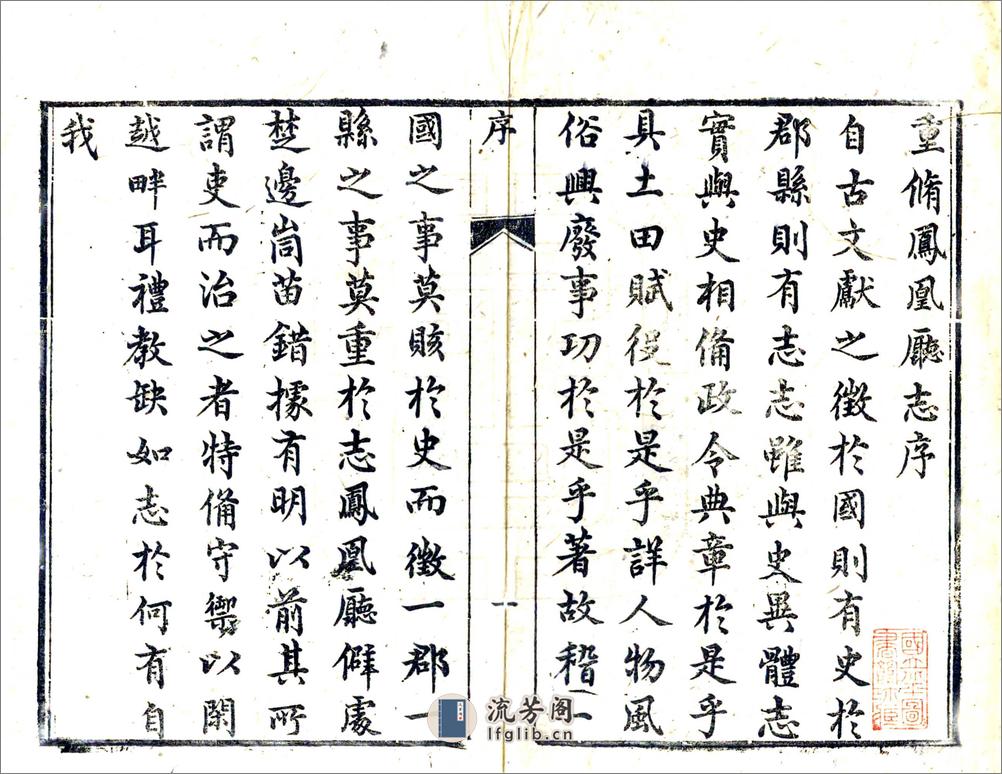 重脩鳳凰廳志序
自古文獻之徵於國則有史於
郡縣則有志志雖與史異體志
實與史相俻政令典章於是乎
具土田賦役於是乎詳人物風
俗興廢事功於是乎著故稽一
序
一
國之事莫賅於史而徵一郡一
縣之事莫重於志鳳凰廳僻處
楚邊峝苗錯據有明以前其所
謂吏而治之者特俻守禦以閑
越畔耳禮教缺如志於何有自
我
流芳阁
lfglib.cn